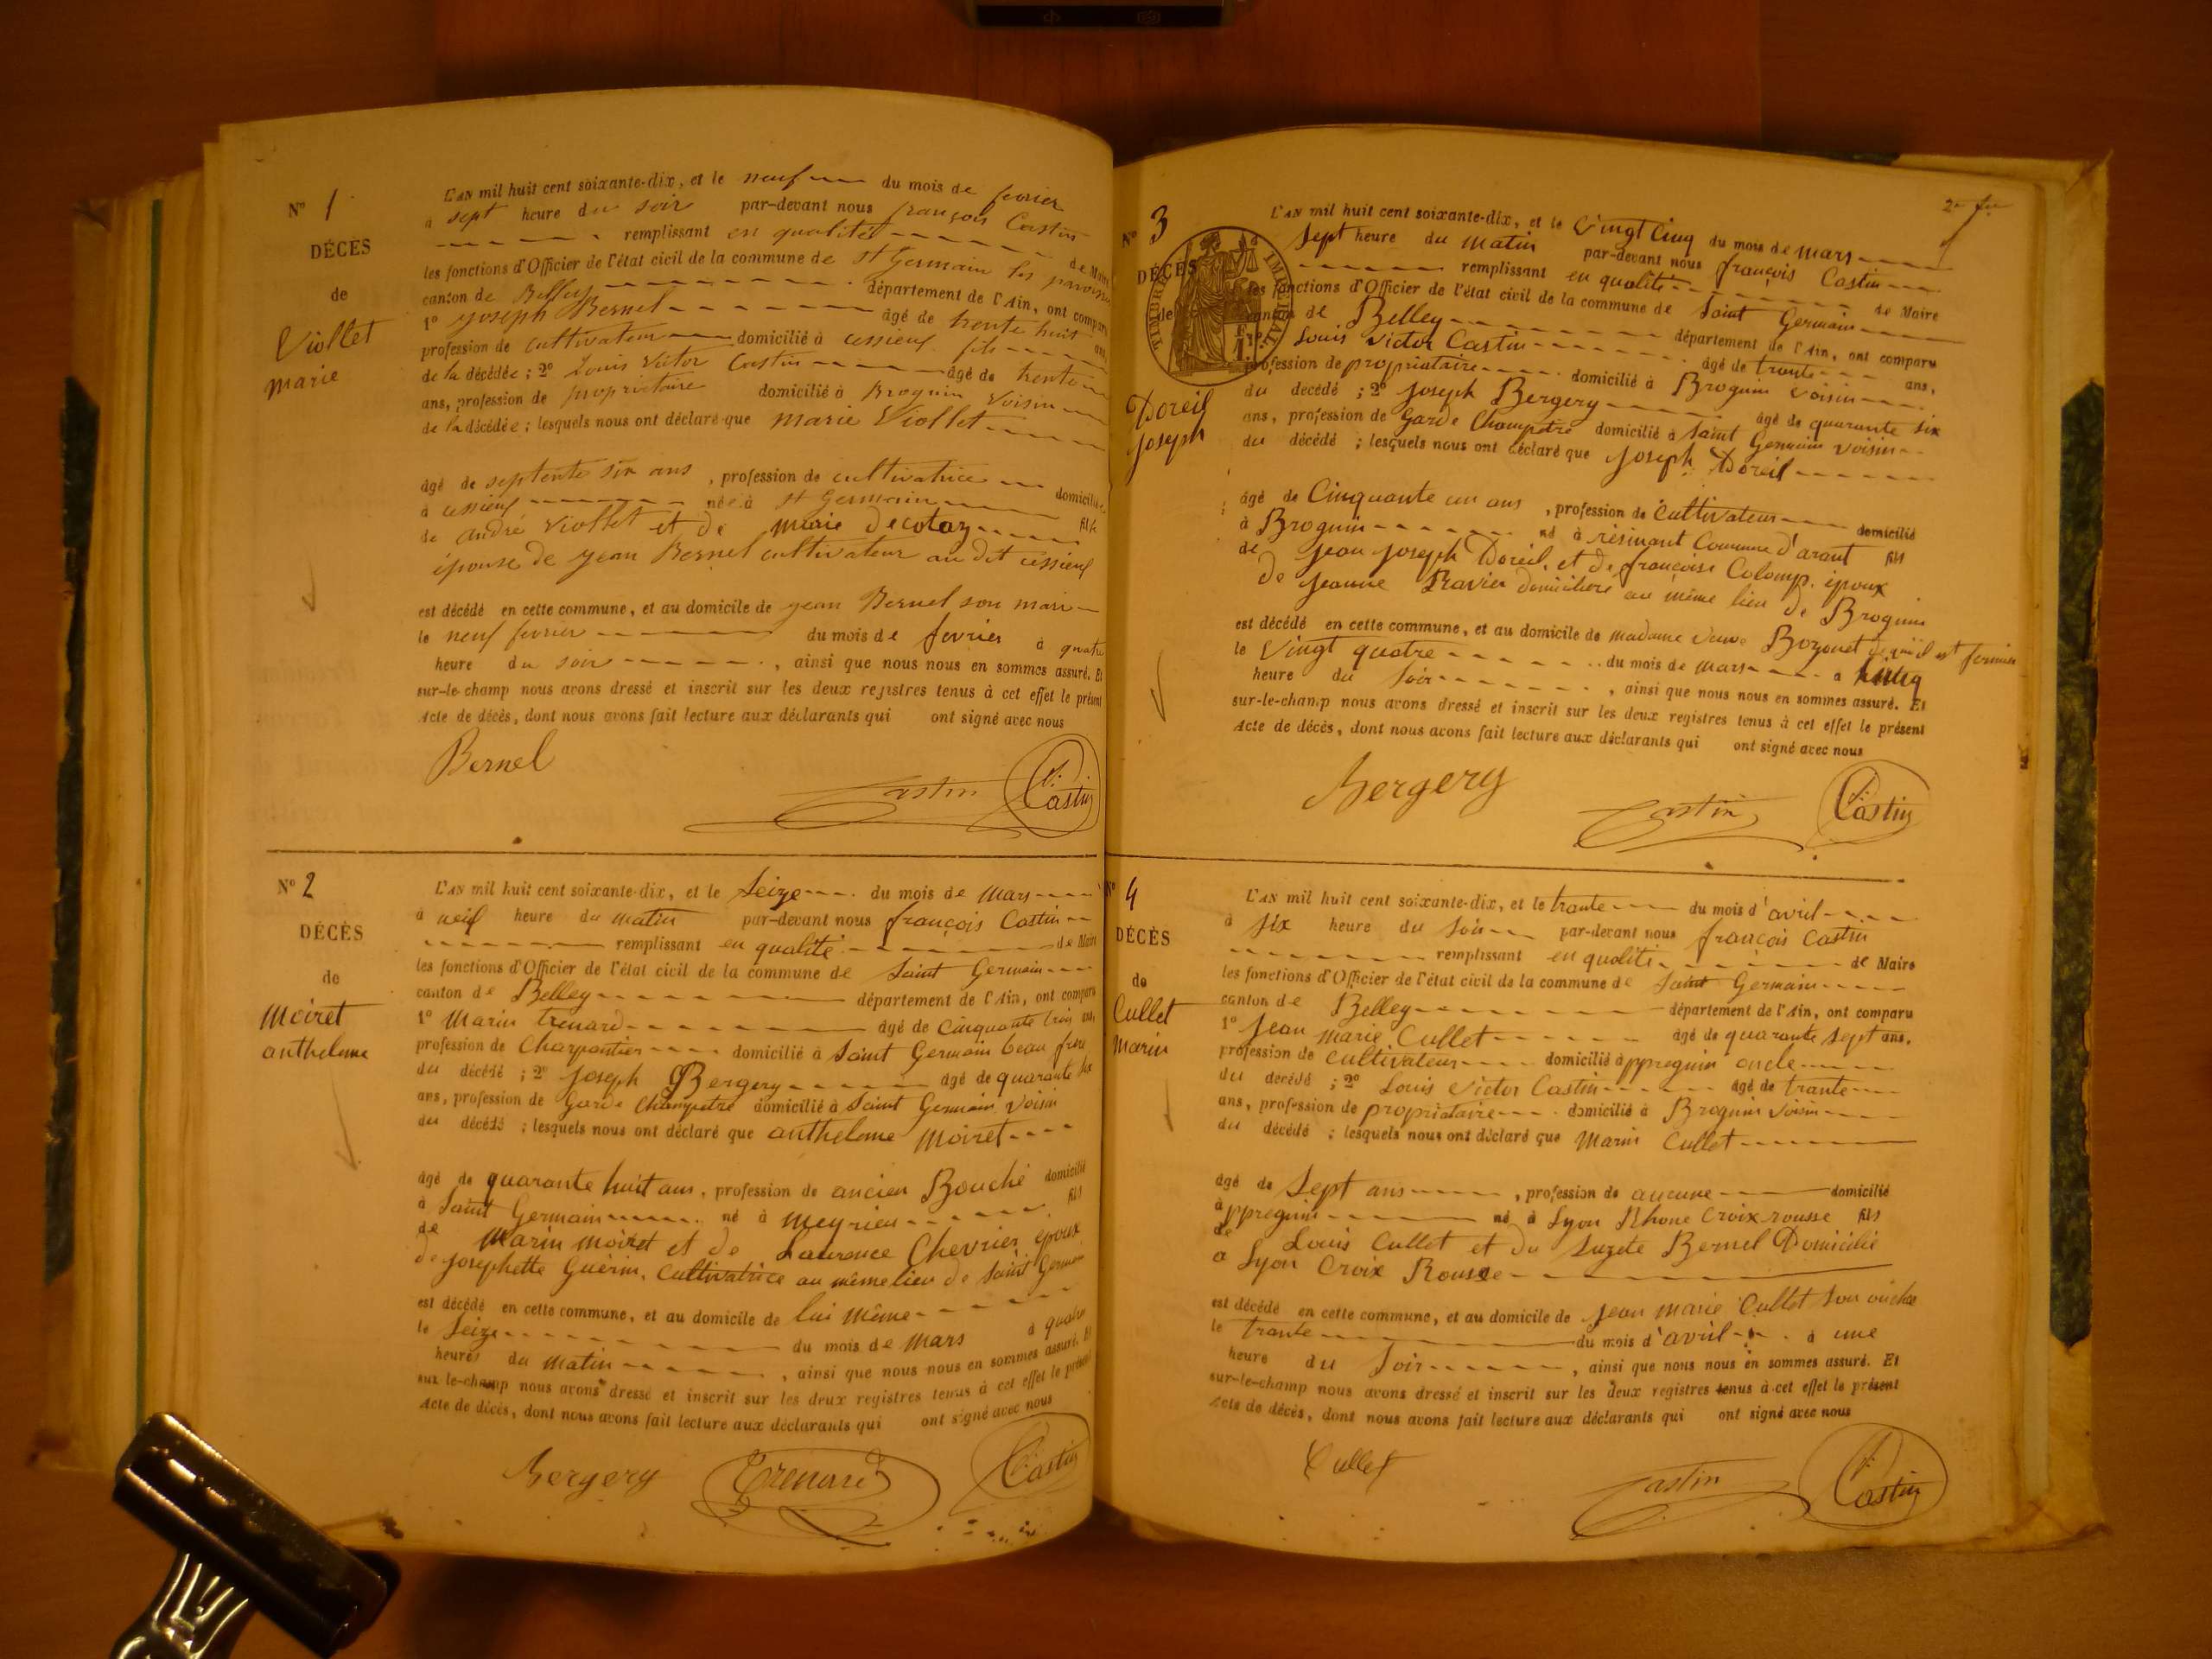 Nº 1
DÉCÈS
de
Viollet
marie
L'AN mil huit cent soixante-dix, et le neuf du mois de fevrier
à sept heure du soir par-devant nous françois Castin
remplissant en qualité de Maire
les fonctions d'Officier de l'état civil de la commune de St Germain les paroisses
canton de Belley département de l'Ain, ont comparu
1º joseph Bernel âgé de trente huit ans
profession de cultivateur domicilié à cessieux fils
de la décédée ; 2º Louis Victor Castin âgé de trente
ans, profession de propriétaire domicilié à Brognin Voisin
de la décédée ; lesquels nous ont déclaré que marie Viollet
âgé de septente six ans , profession de cultivatrice domiciliée
à cessieux née à St Germain fille
de andré Viollet et de marie decotay
épouse de jean Bernel cultivateur au dit cessieux
est décédé en cette commune, et au domicile de jean Bernel son mari
le neuf fevrier du mois de fevrier à quatre
heure du soir , ainsi que nous nous en sommes assuré. Et
sur-le-champ nous avons dressé et inscrit sur les deux registres tenus à cet effet le présent
Acte de décès, dont nous avons fait lecture aux déclarants qui ont signé avec nous
Bernel
Castin
Castin
Nº 2
DÉCÈS
de
Moiret
anthelme
L'AN mil huit cent soixante-dix, et le Seize du mois de Mars
à neuf heure du matin par-devant nous françois Castin
remplissant en qualité de Maire
les fonctions d'Officier de l'état civil de la commune de Saint Germain
canton de Belley département de l'Ain, ont comparu
1º Marin trenard âgé de Cinquante trois ans
profession de Charpentier domicilié à Saint Germain beau frère
du décédé ; 2º Joseph Bergery âgé de quarante six
ans, profession de Garde Champetre domicilié à Saint Germain Voisin
du décédé ; lesquels nous ont déclaré que anthelme Moiret
âgé de quarante huit ans , profession de ancien Bouché domicilié
à Saint Germain né à Meyrieu fils
de Marin Moiret et de Laurence Chevrier époux
de Josephette Guérin, Cultivatrice au même lieu de Saint Germain
est décédé en cette commune, et au domicile de lui Même
le Seize du mois de Mars à quatre
heures du matin , ainsi que nous nous en sommes assuré. Et
sur le-champ nous avons dressé et inscrit sur les deux registres tenus à cet effet le présent
Acte de décès, dont nous avons fait lecture aux déclarants qui ont signé avec nous
Bergery
Trenard
Castin
Nº 3
DÉCÈS
de
TIMBRE IMPÉRIAL
Doreil
Joseph
L'AN mil huit cent soixante-dix, et le Vingt Cinq du mois de Mars
Sept heure du Matin par-devant nous françois Castin
remplissant en qualité de Maire
les fonctions d'Officier de l'état civil de la commune de Saint Germain
canton de Belley département de l'Ain, ont comparu
Louis Victor Castin âgé de trante ans,
profession de propriataire domicilié à Brognin Voisin
du décédé ; 2º Joseph Bergery âgé de quarante six
ans, profession de Garde Champetre domicilié à Saint Germain Voisin
du décédé ; lesquels nous ont déclaré que Joseph Doreil
âgé de Cinquante un ans , profession de Cultivateur domicilié
à Brognin né à résinant Commune d'arant fils
de Jean Joseph Doreil, et de françoise Colomp. époux
de Jeanne Ravier domiciliere au même lieu de Brognin
est décédé en cette commune, et au domicile de Madame Veuve Bozonet il est fermier
le Vingt quatre du mois de Mars à
heure du Soir , ainsi que nous nous en sommes assuré. Et
sur-le-champ nous avons dressé et inscrit sur les deux registres tenus à cet effet le présent
Acte de décès, dont nous avons fait lecture aux déclarants qui ont signé avec nous
Bergery
Castin
Castin
Nº 4
DÉCÈS
de
Cullet
Marin
L'AN mil huit cent soixante-dix, et le trante du mois d'avril
à Six heure du Soir par-devant nous françois Castin
remplissant en qualité de Maire
les fonctions d'Officier de l'état civil de la commune de Saint Germain
canton de Belley département de l'Ain, ont comparu
1º Jean Marie Cullet âgé de quarante Sept ans.
profession de Cultivateur domicilié à ppregnin oncle
du décédé ; 2º Louis Victor Castin âgé de trante
ans, profession de propriataire domicilié à Brognin Voisin
du décédé ; lesquels nous ont déclaré que Marin Cullet
âgé de Sept ans , profession de aucune domicilié
à ppregnin né à Lyon Rhone Croix rousse fils
de Louis Cullet et du Suzete Bernel Domicilié
a Lyon Croix Rousse
est décédé en cette commune, et au domicile de Jean Marie Cullet Son oncle
le trante du mois d'avril à une
heure du Soir , ainsi que nous nous en sommes assuré. Et
sur-le-champ nous avons dressé et inscrit sur les deux registres tenus à cet effet le présent
Acte de décès, dont nous avons fait lecture aux déclarants qui ont signé avec nous
Cullet
Castin
Castin